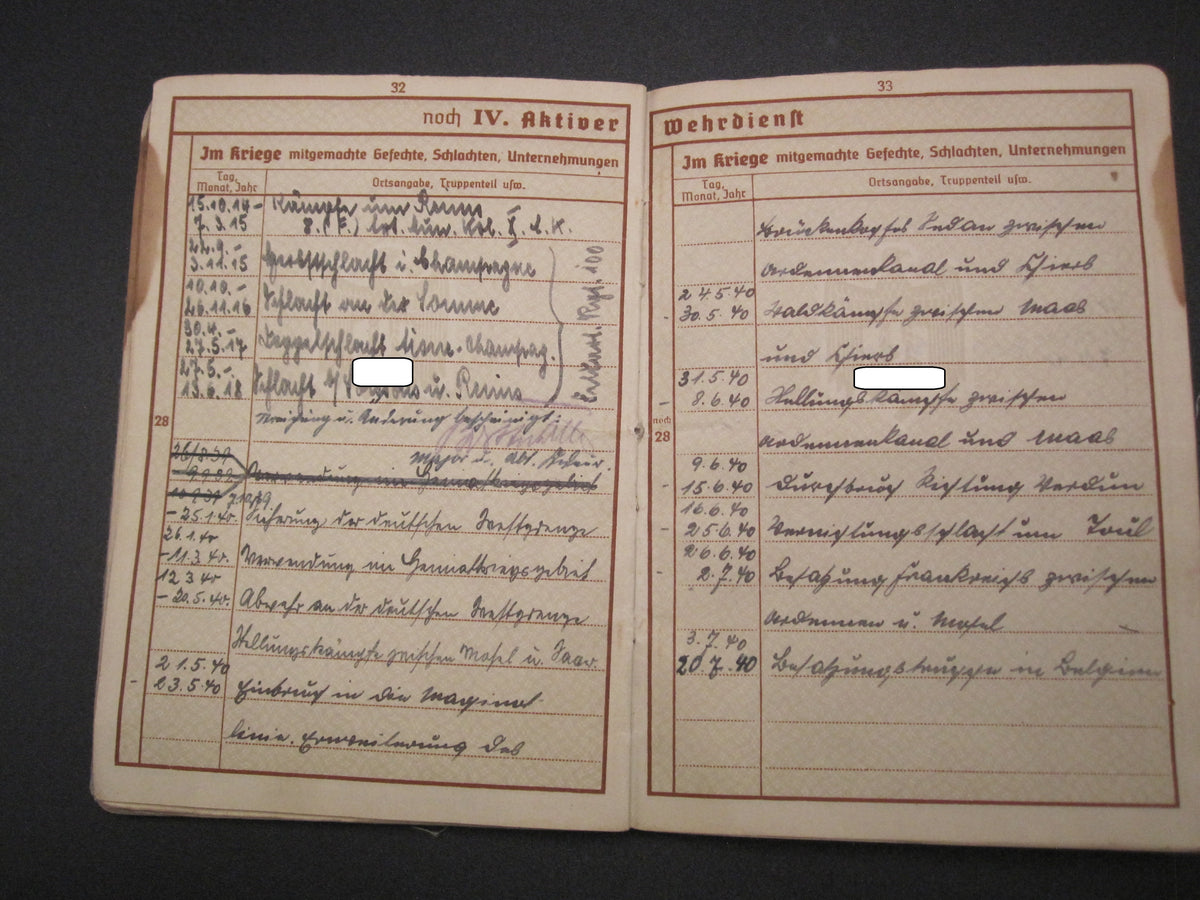 32
noch IV. Aktiver
Im Kriege mitgemachte Gefechte, Schlachten, Unternehmungen
Tag, Monat, Jahr
Ortsangabe, Truppenteil usw.
15.10.14 - Kämpfe um Reims -
7.3.15
22.9. - Herbstschlacht i. d. Champagne
3.11.15
10.10. - Schlacht an der Somme
26.11.16
30.4. - Doppelschlacht Aisne-Champag.
27.5.17
27.5. - Schlacht b/ Soissons u. Reims
13.6.18
28
Major u. Abt.
26.8.39
9.9.39 Verwendung im Heimatkriegsgebiet
- 25.1.40. Sicherung der deutschen Westgrenze
26.1.40
- 11.3.40. Verwendung im Heimatkriegsgebiet
12.3.40
- 20.5.40. Abwehr an der deutschen Westgrenze
Stellungskämpfe zwischen Mosel u. Saar
21.5.40
- 23.5.40 Einbruch in die Maginot
linie. Erweiterung des
33
Wehrdienst
Im Kriege mitgemachte Gefechte, Schlachten, Unternehmungen
Tag, Monat, Jahr
Ortsangabe, Truppenteil usw.
Brückenkopfes Sedan zwischen
Ardennenkanal und Chiers
24.5.40
- 30.5.40 Waldkämpfe zwischen Maas
und Chiers
31.5.40
- 8.6.40 Stellungskämpfe zwischen
noch
28
Ardennenkanal und Maas
9.6.40
- 15.6.40 Durchbruch Richtung Verdun
16.6.40
- 25.6.40 Vernichtungsschlacht um Toul
26.6.40
- 2.7.40 Besatzung Frankreichs zwischen
Ardennen u. Mosel
3.7.40
20.7.40 Besatzungstruppe in Belgien